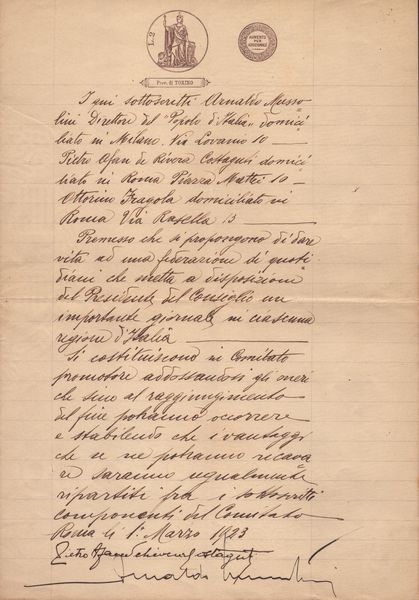 L. 2
AUMENTO
PER
Prov. di TORINO
I qui sottoscritti Arnaldo Musso-
lini Direttore del "Popolo d'Italia" domici
liato in Milano Via Lovanio 10
Pietro Afan de Rivera Costaguti domici
liato in Roma Piazza Mattei 10
Ottorino Fragola domiciliato in
Roma Via Rasella 13
Premesso che si propongono di dare
vita ad una federazione di quoti
diani che metta a disposizione
del Presidente del Consiglio un
importante giornale in ciascuna
regione d'Italia
Si costituiscono in Comitato
promotore addossandosi gli oneri
che sino al raggiungimento
del fine potranno occorrere
e stabilendo che i vantaggi
che se ne potranno ricava
re saranno ugualmente
ripartiti fra i sottoscritti
componenti del Comitato
Roma li 1º Marzo 1923
Arnaldo Mussolini